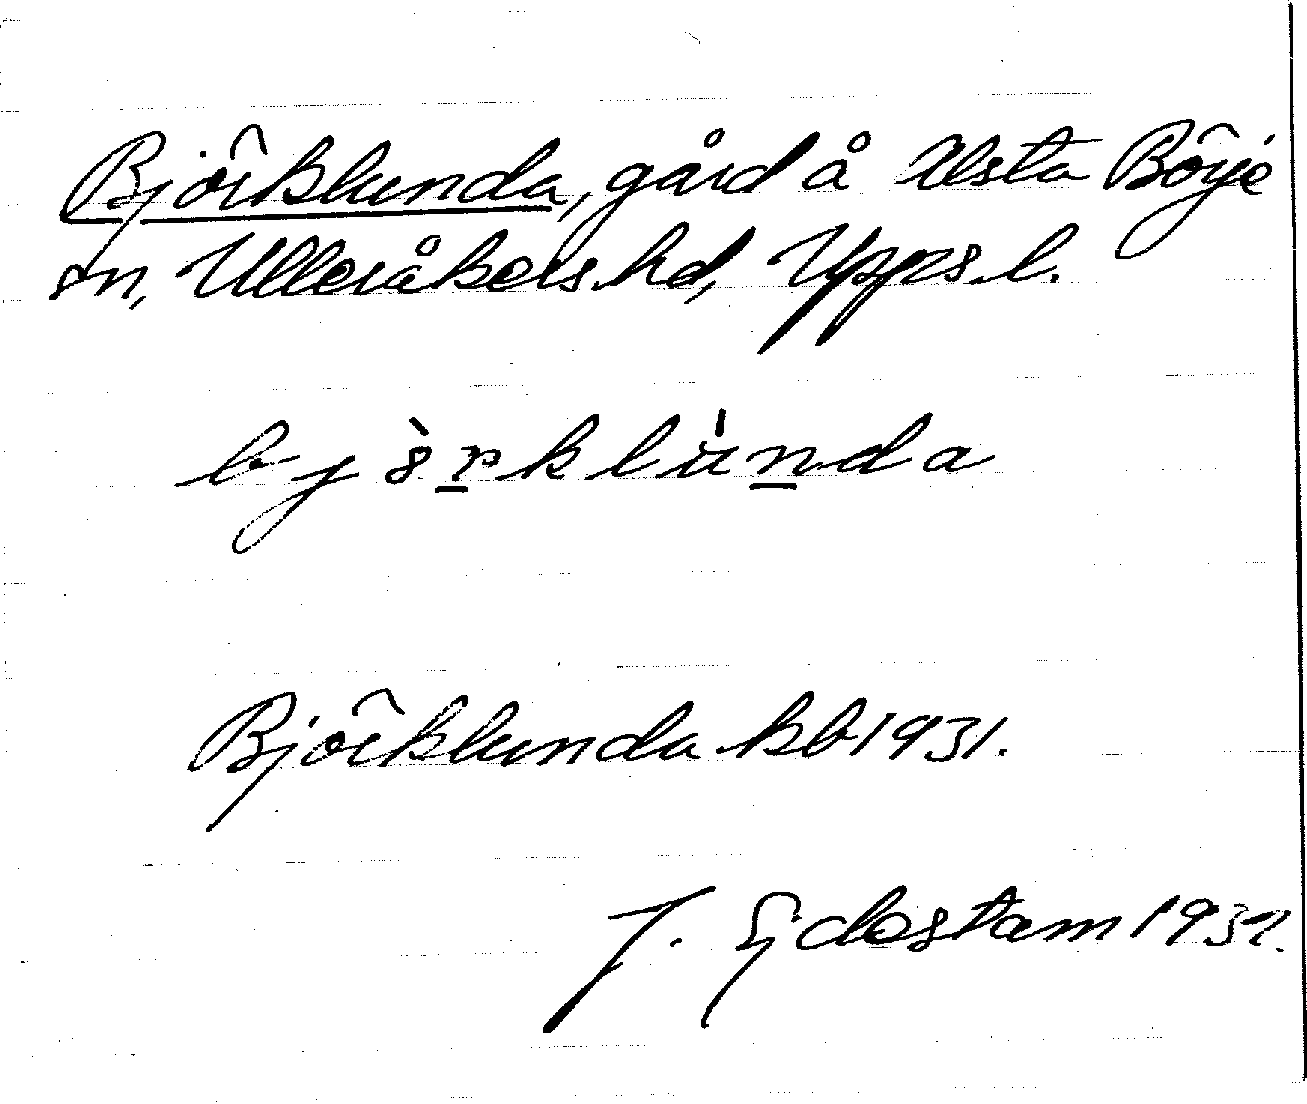 Björklunda, gård å Alsta Börje
sn, Ulleråkers hd, Upps. l.
bjö̀rklu̍nda
Björklunda kb 1931.
J. Ejdestam 1937.